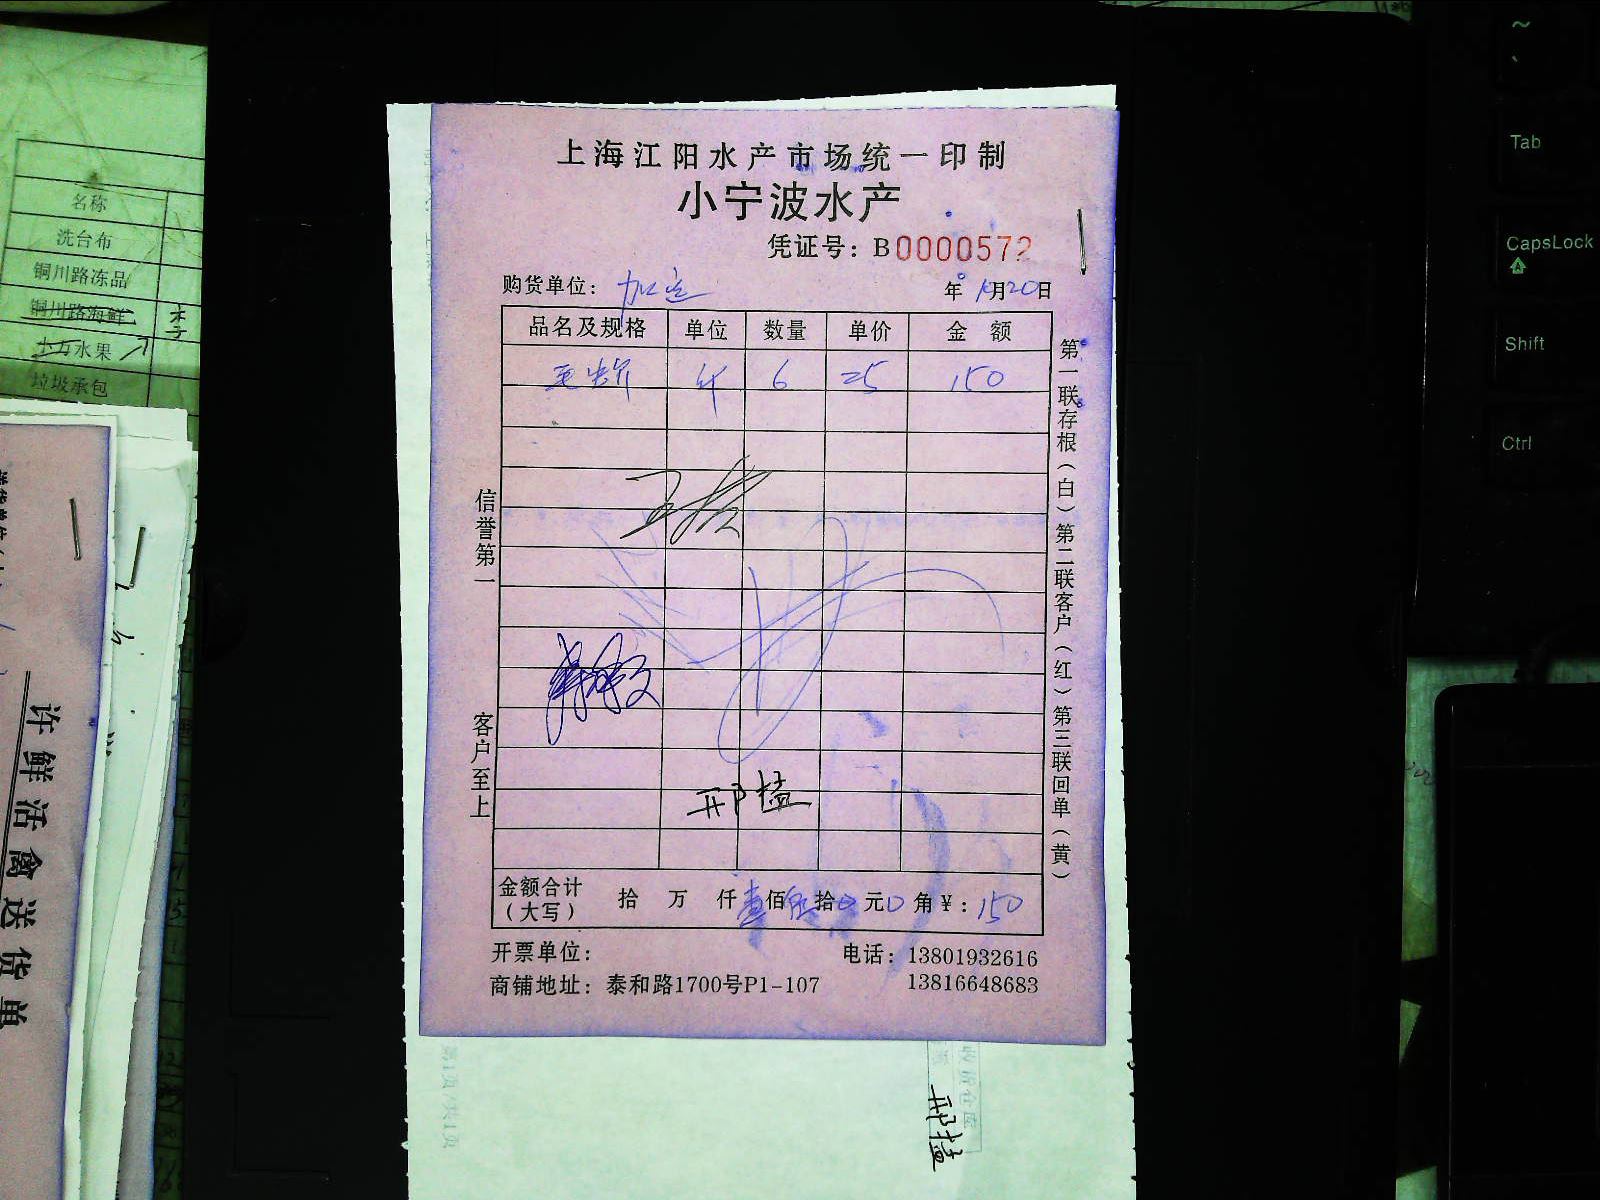 上海江阳水产市场统一印制
小宁波水产
凭证号：B0000572
购货单位：加
年 10月20日
品名及规格 单位 数量 单价 金 额
6 25 150
金额合计（大写） 拾 万 仟壹佰伍拾0元0角￥：150
开票单位：
电话：13801932616
13816648683
商铺地址：泰和路1700号P1-107
信誉第一
客户至上
第一联存根（白）第二联客户（红）第三联回单（黄）
邢
邢
名称
洗台布
铜川路冻品
铜川路海鲜
水果
垃圾承包
许鲜活禽送货单
第1页/共1页
~
Tab
CapsLock
Shift
Ctrl